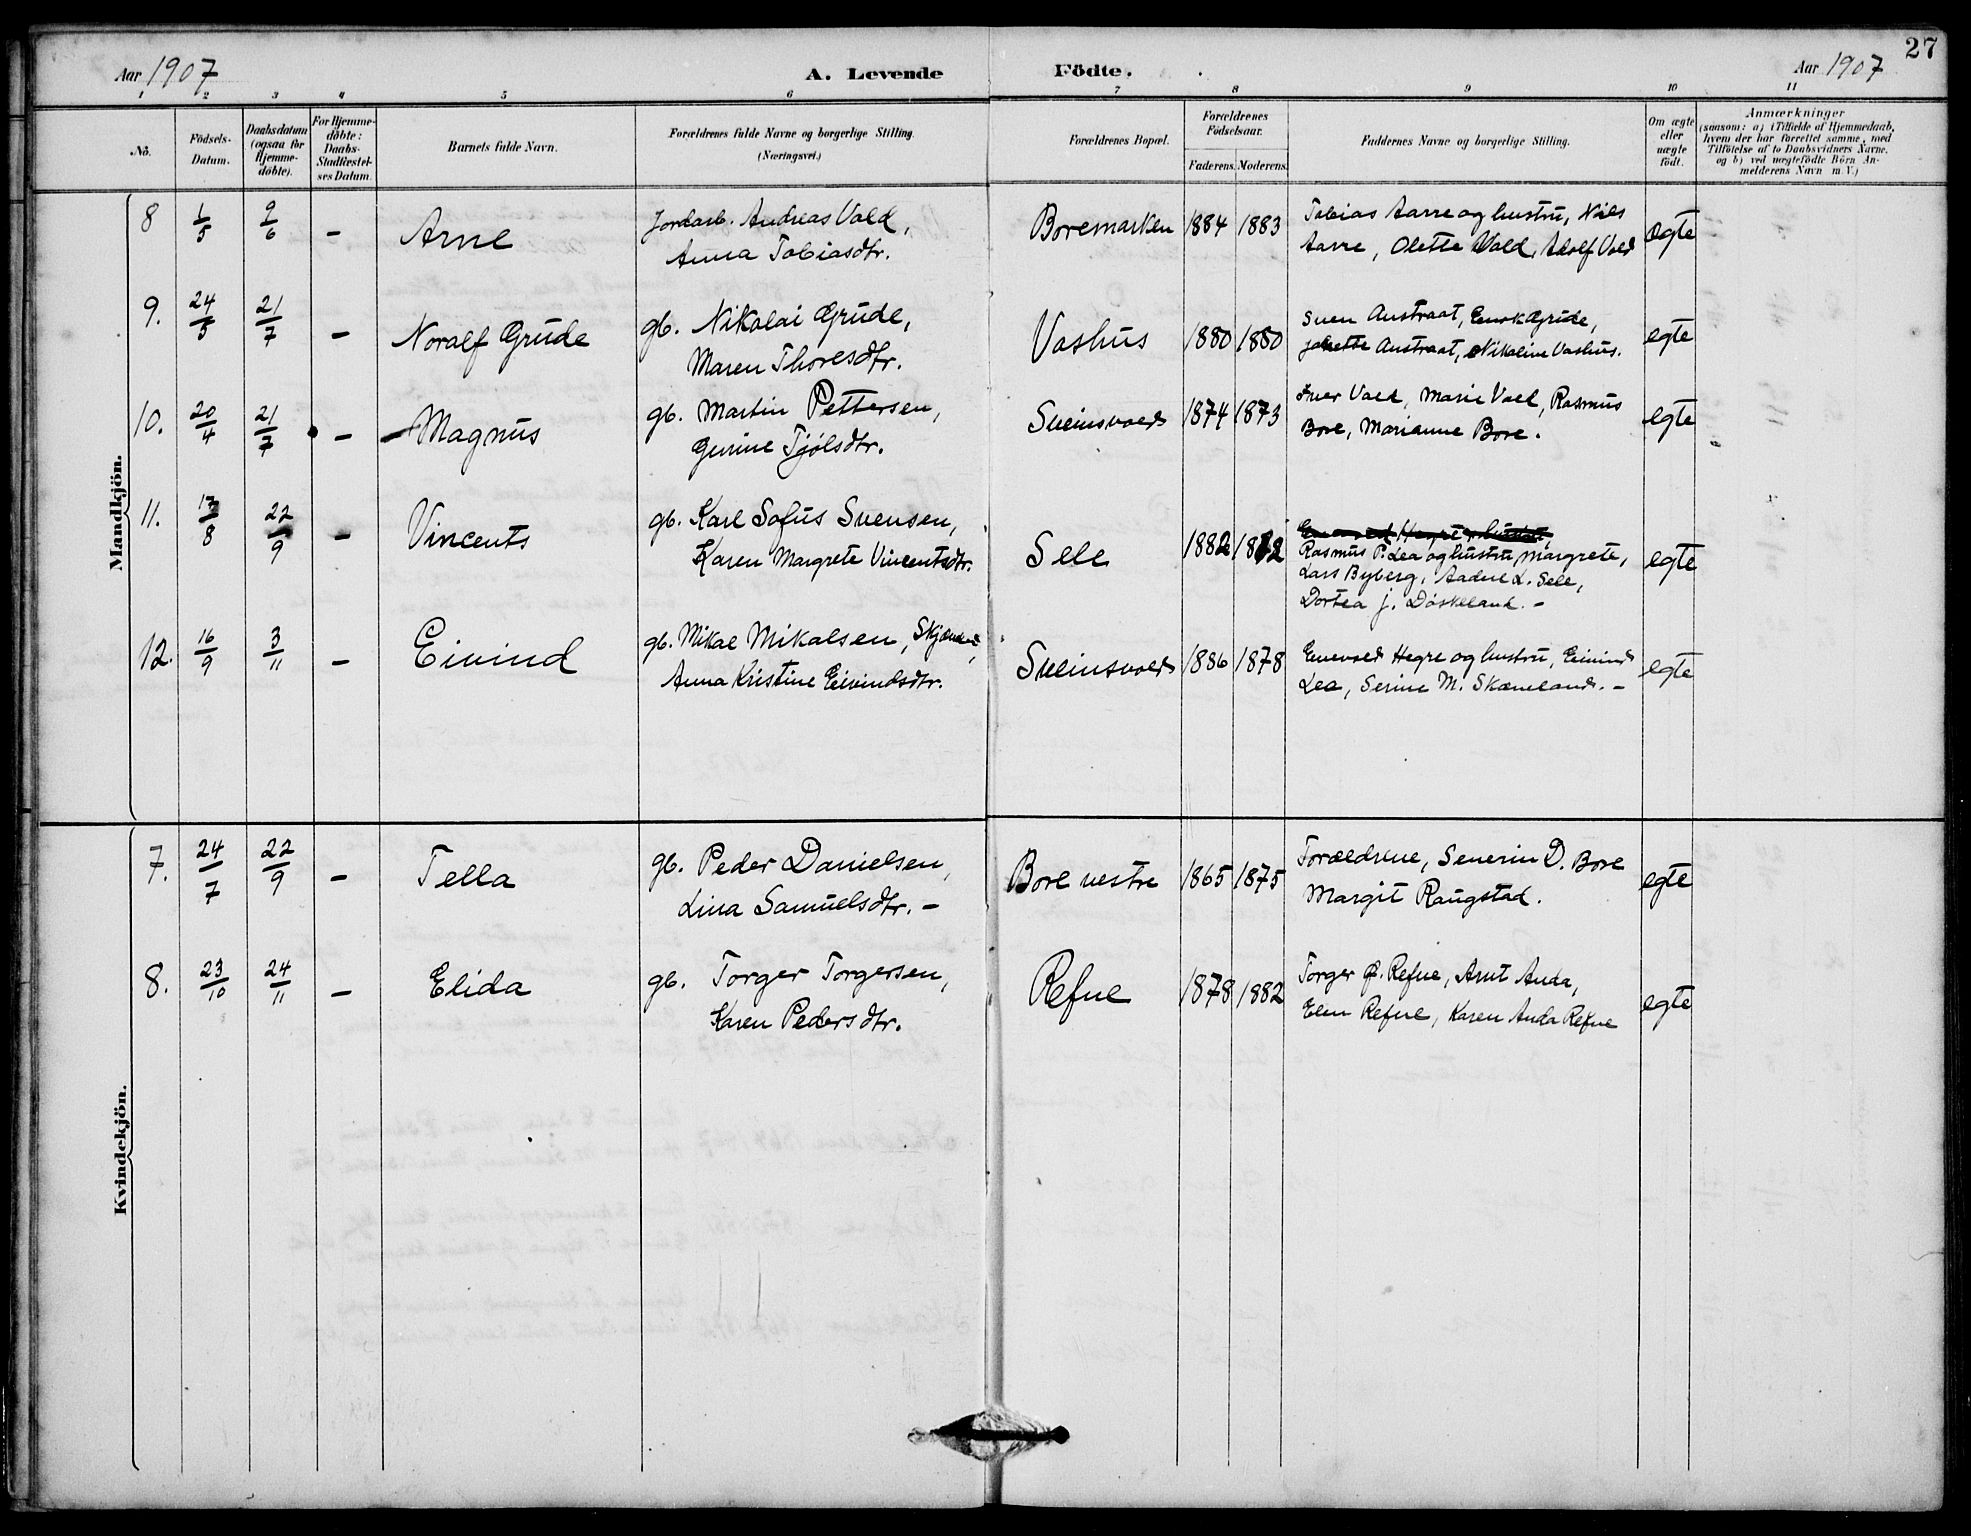 27
Aar 1907 A. Levende Födte. Aar 1907
1 2 3 4 5 6 7 8 9 10 11
No. Födsels-Datum. Daabsdatum (ogsaa for Hjemme-döbte). For Hjemme-döbte: Daabs-Stadfæstel-ses Datum. Barnets fulde Navn. Forældrenes fulde Navne og borgerlige Stilling. (Næringsvei.) Forældrenes Bopæl. Forældrenes Födselsaar. Faderens. Moderens. Faddernes Navne og borgerlige Stilling. Om ægte eller uægte født. Anmærkninger (saasom: a) i Tilfælde af Hjemmedaab, hvem der har forrettet samme, med Tilföielse af to Daabsvidners Navne, og b) ved uægtefödte Börn An-melderens Navn m. V.)
Mandkjön.
8 1/5 9/6 - Arne Jordarb. Andreas Vold, Boremarken 1884 1883 Tobias Aarre og hustru, Nils ægte
Anna Tobiasdtr. Aarre, Olette Vold, Adolf Vold
9. 24/5 21/7 - Noralf Grude gb. Nikolai Grude, Vashus 1880 1880 Sven Austraat, Enok Grude, egte
Maren Thoresdtr. Austraat, Nikoline Vashus.
10. 20/4 21/7 - Magnus gb. Martin Pettersen, Sveinsvold 1874 1873 Iver Vold, Marie Vold, Rasmus egte
Gurine Tjølsdtr. Bore, Marianne Bore.
11. 17/8 22/9 - Vincents gb. Karl Sofus Svensen, Sele 1882 1882 Enevold Hegre og hustru, egte
Karen Margrete Vincentsdtr. Rasmus P. Lea og hustru Margrete,
Lars Byberg, Aadne L. Sele,
Dortea J. Døskeland. -
12. 16/9 3/11 - Eivind gb. Mikal Mikalsen, Sveinsvold 1886 1878 Enevold Hegre og hustru, Eivind egte
Anna Kristine Eivindsdtr. Lea, Serine M. Skæveland. -
Kvindekjön.
7. 24/7 22/9 - Tella gb. Peder Danielsen, Bore vestre 1865 1875 Forældrene, Severin D. Bore egte
Lina Samuelsdtr. - Margit Raugstad.
8. 23/10 24/11 - Elida gb. Torger Torgersen, Refne 1878 1882 Torger Refne, Arnt Anda, egte
Karen Pedersdtr. Elen Refne, Karen Anda Refne